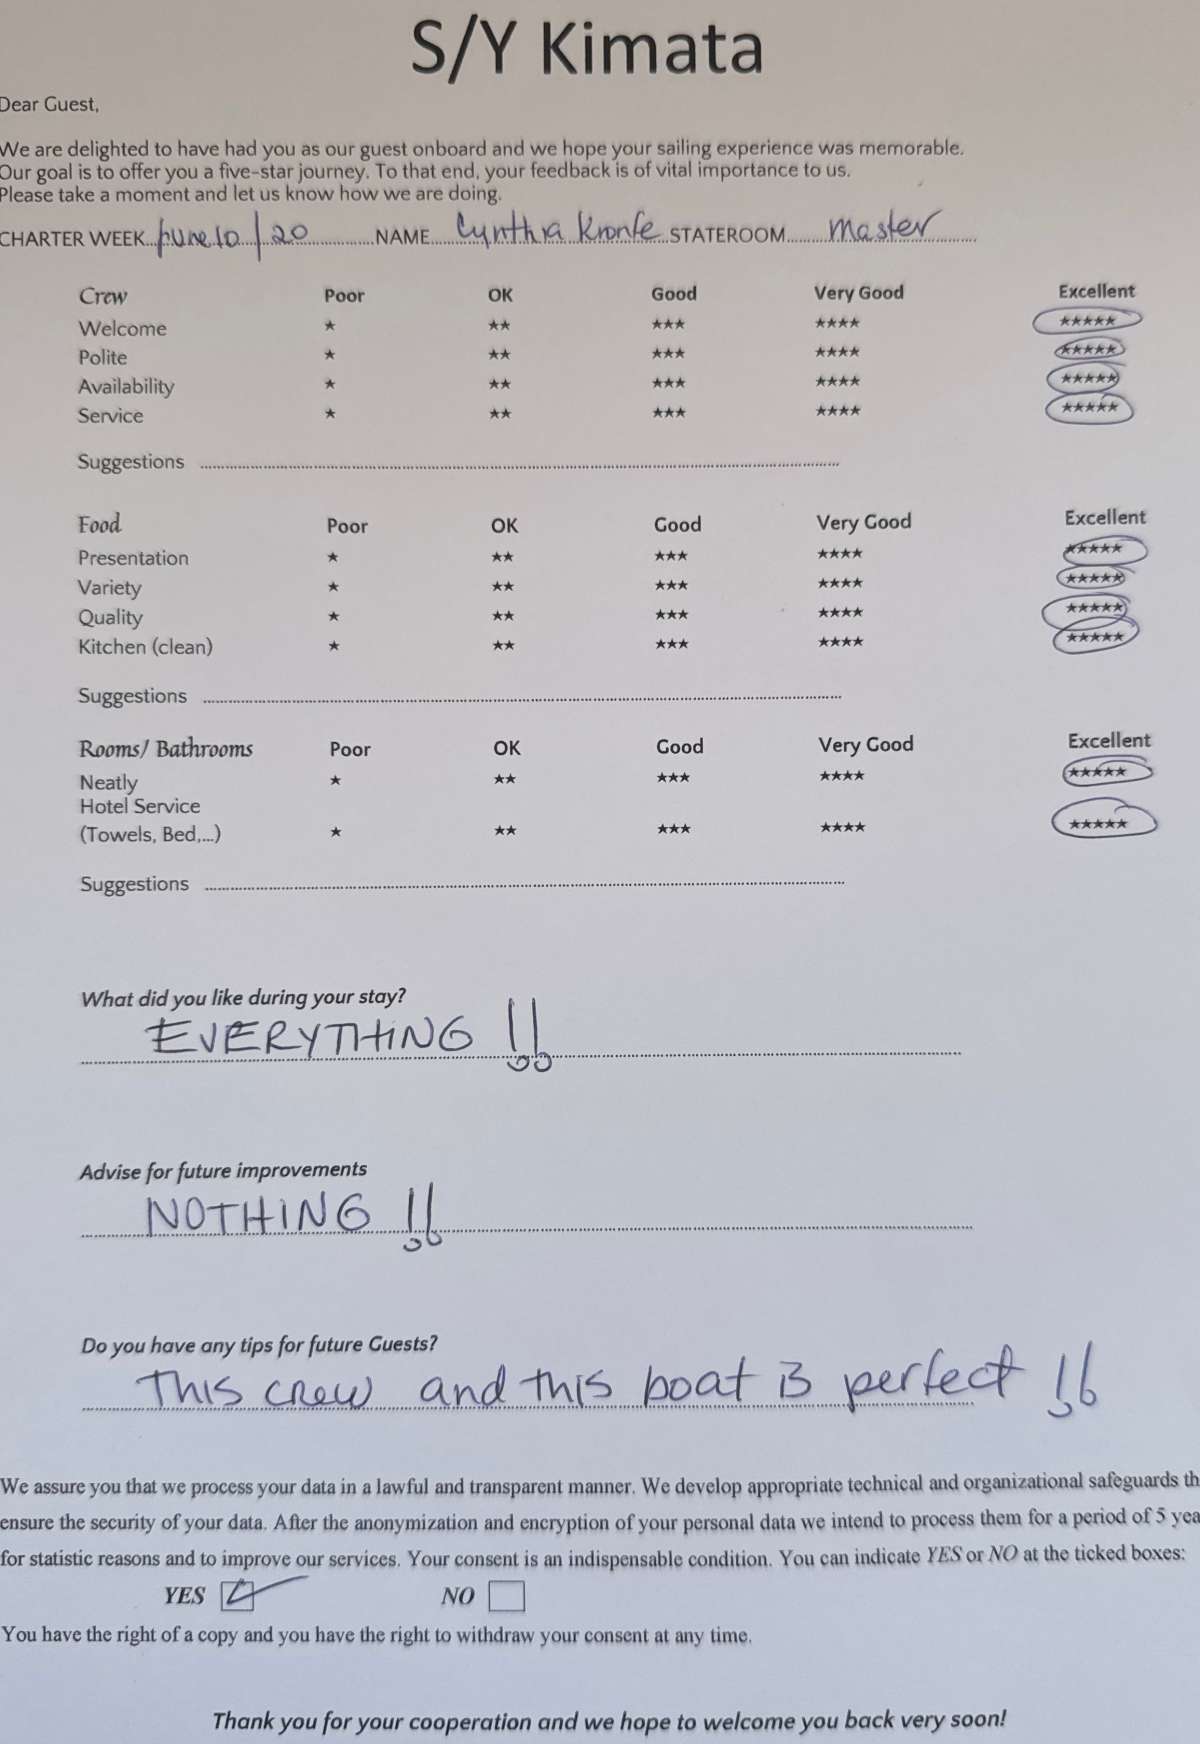 S/Y Kimata
Dear Guest,
We are delighted to have had you as our guest onboard and we hope your sailing experience was memorable.
Our goal is to offer you a five-star journey. To that end, your feedback is of vital importance to us.
Please take a moment and let us know how we are doing.
CHARTER WEEK June 10 / 20 NAME Cynthia Kronfe STATEROOM master
Crew Poor OK Good Very Good Excellent
Welcome ★ ★★ ★★★ ★★★★ ★★★★★
Polite ★ ★★ ★★★ ★★★★ ★★★★★
Availability ★ ★★ ★★★ ★★★★ ★★★★★
Service ★ ★★ ★★★ ★★★★ ★★★★★
Suggestions
Food Poor OK Good Very Good Excellent
Presentation ★ ★★ ★★★ ★★★★ ★★★★★
Variety ★ ★★ ★★★ ★★★★ ★★★★★
Quality ★ ★★ ★★★ ★★★★ ★★★★★
Kitchen (clean) ★ ★★ ★★★ ★★★★ ★★★★★
Suggestions
Rooms/ Bathrooms Poor OK Good Very Good Excellent
Neatly ★ ★★ ★★★ ★★★★ ★★★★★
Hotel Service
(Towels, Bed,...) ★ ★★ ★★★ ★★★★ ★★★★★
Suggestions
What did you like during your stay?
EVERYTHING !!
Advise for future improvements
NOTHING !!
Do you have any tips for future Guests?
This crew and this boat is perfect !!
We assure you that we process your data in a lawful and transparent manner. We develop appropriate technical and organizational safeguards th
ensure the security of your data. After the anonymization and encryption of your personal data we intend to process them for a period of 5 yea
for statistic reasons and to improve our services. Your consent is an indispensable condition. You can indicate YES or NO at the ticked boxes:
YES NO
You have the right of a copy and you have the right to withdraw your consent at any time.
Thank you for your cooperation and we hope to welcome you back very soon!